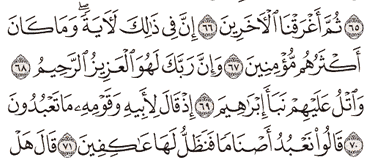 ﴿٦٥﴾ ثُمَّ أَغْرَقْنَا ٱلْأَخَرِينَ ﴿٦٦﴾ إِنَّ فِى ذَٰلِكَ لَأَيَةً ۖ وَمَا كَانَ
أَكْثَرُهُم مُّؤْمِنِينَ ﴿٦٧﴾ وَإِنَّ رَبَّكَ لَهُوَ ٱلْعَزِيزُ ٱلرَّحِيمُ
﴿٦٨﴾ وَٱتْلُ عَلَيْهِمْ نَبَأَ إِبْرَٰهِيمَ ﴿٦٩﴾ إِذْ قَالَ لِأَبِيهِ وَقَوْمِهِۦ مَا تَعْبُدُونَ
﴿٧٠﴾ قَالُوا۟ نَعْبُدُ أَصْنَامًا فَنَظَلُّ لَهَا عَٰكِفِينَ ﴿٧١﴾ قَالَ هَلْ